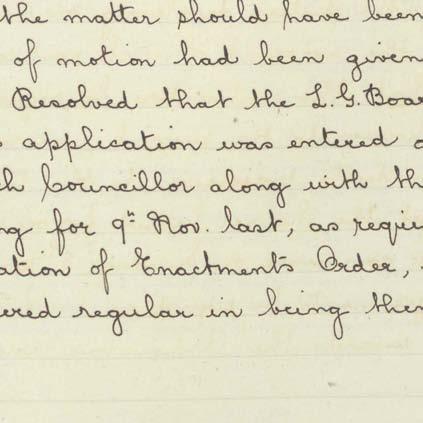 the matter should have been
of motion had been given
Resolved that the L.G. Boar
s application was entered o
ch Councillor along with th
ng for 9th Nov. last, as requi
ation of Enactments Order,
ered regular in being then